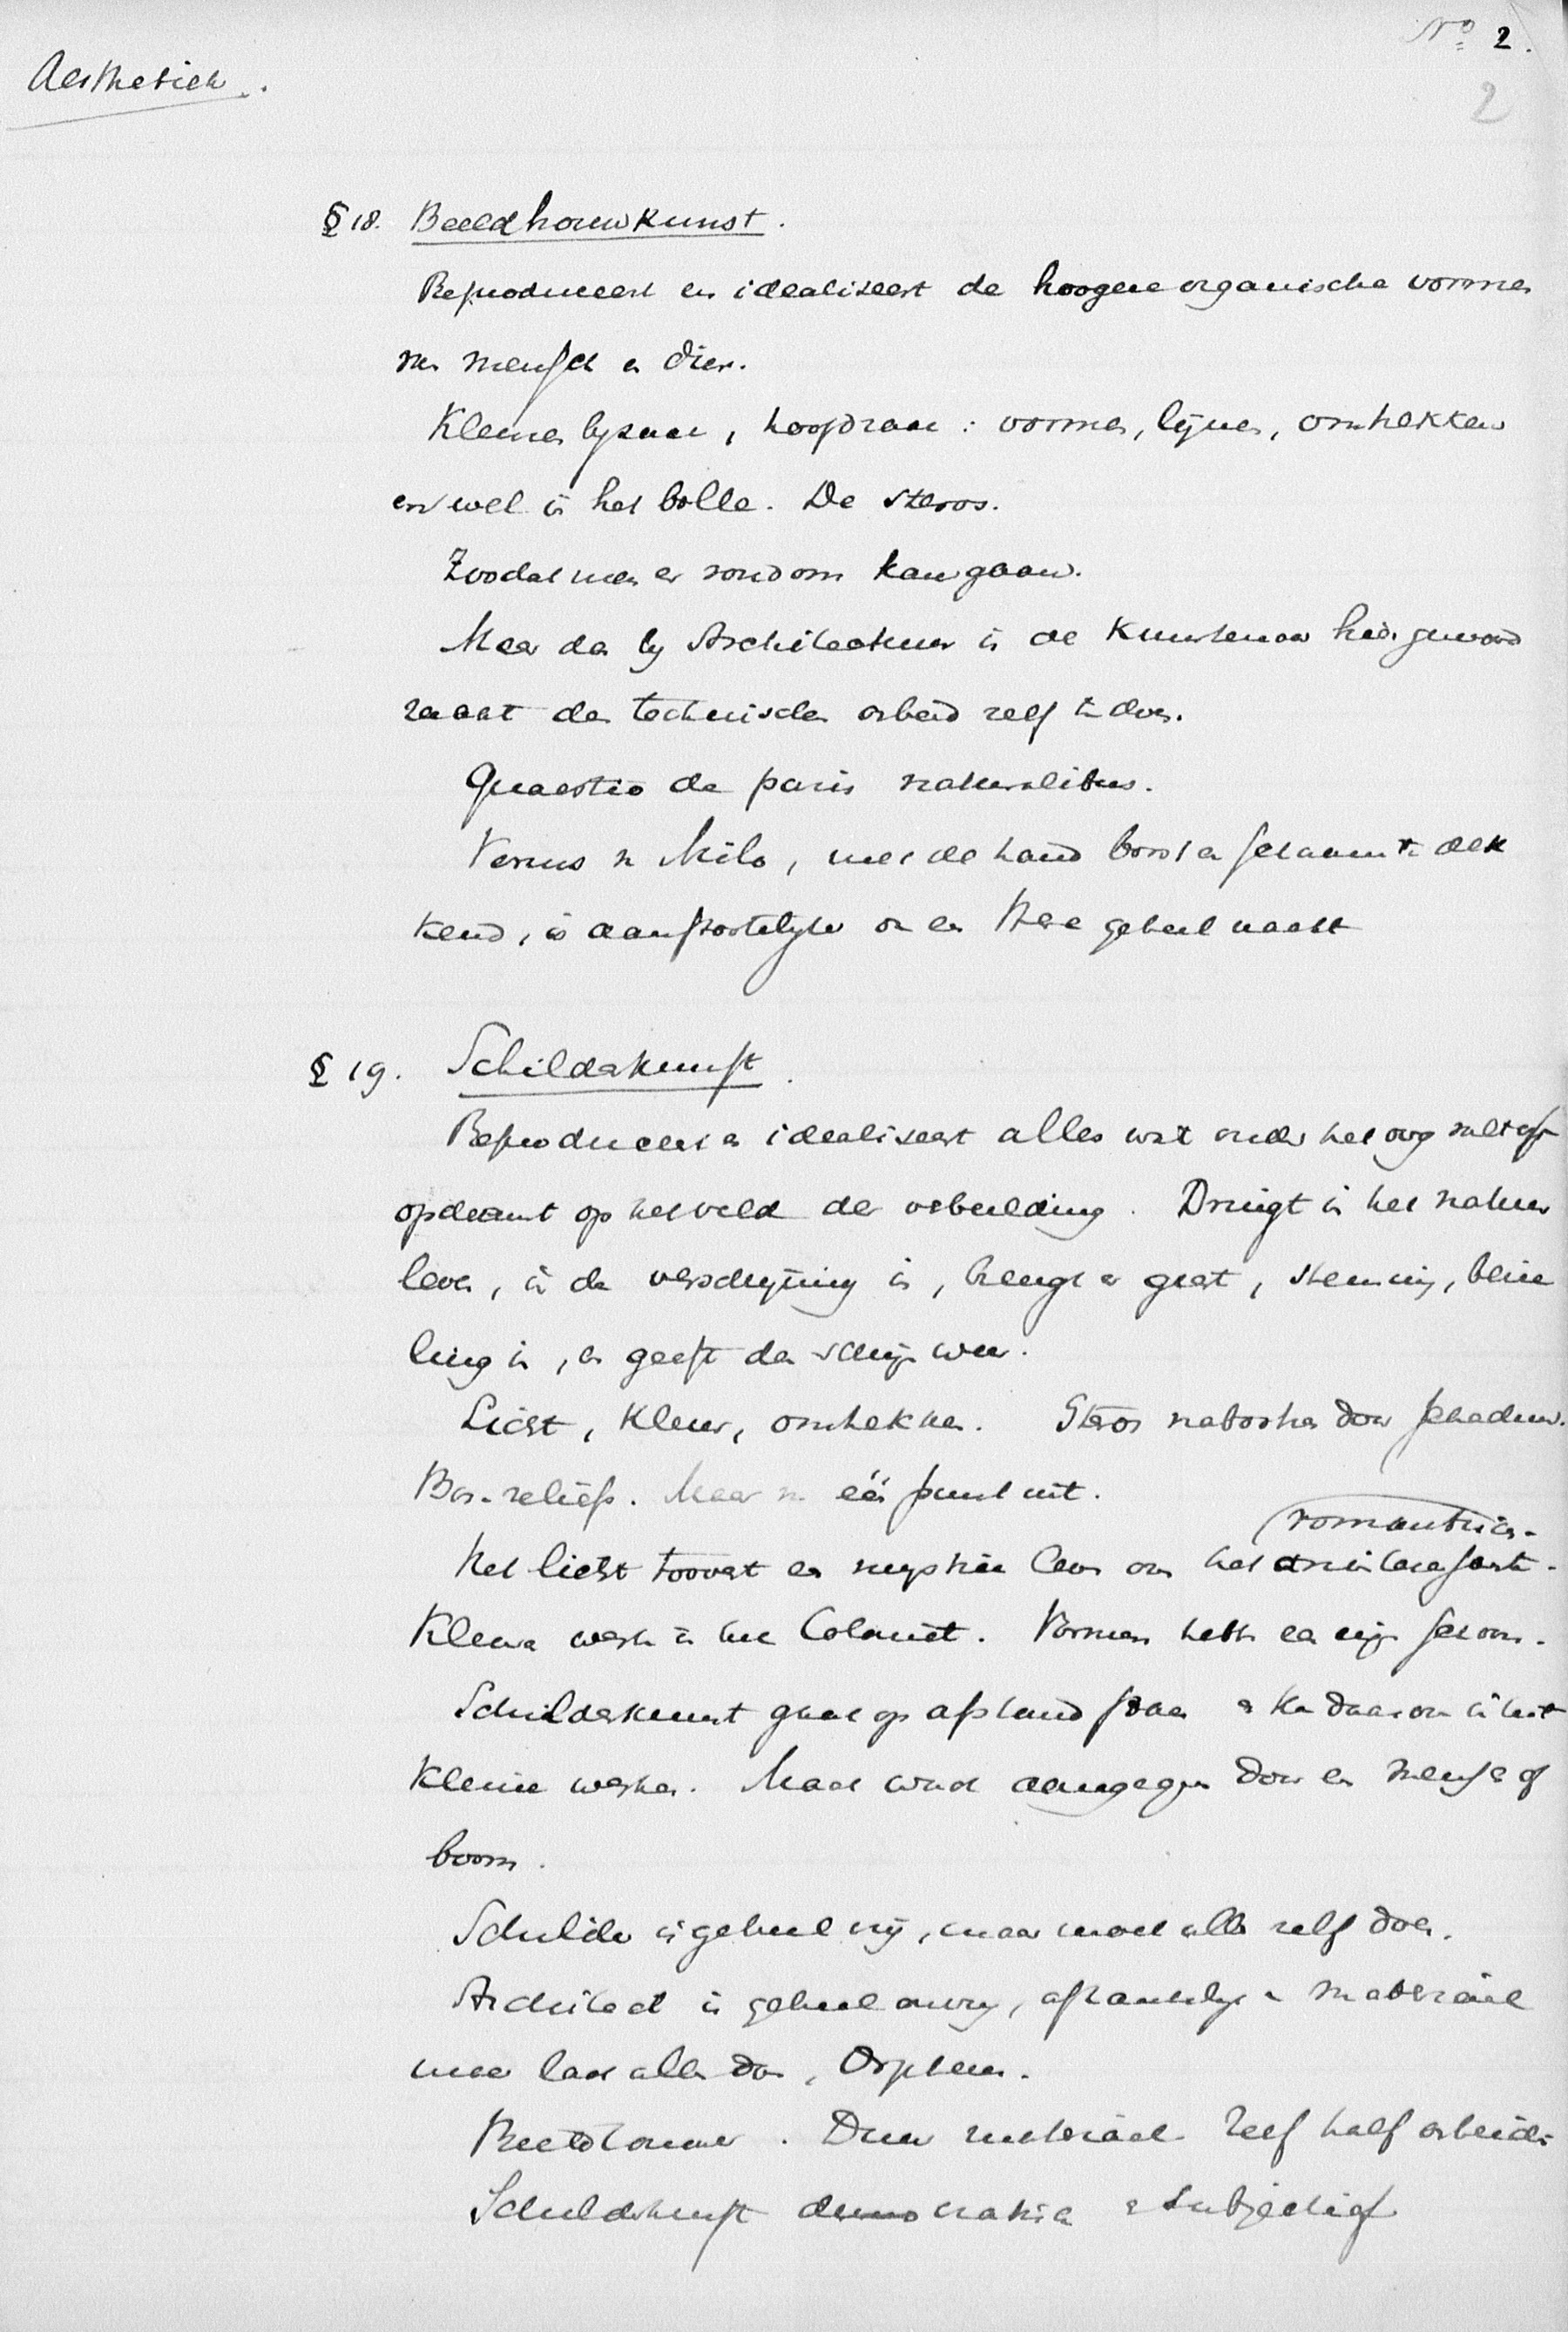 Nº 2.
2
Aesthetiek.
§ 18. Beeldhouwkunst.
Reproduceert en idealiseert de hoogere organische vormen
van mensch en dier.
Kleuren bijzaak, hoofdzaak: vormen, lijnen, omtrekken
en wel in het bolle. De stereos.
Zoodat men er rondom kan gaan.
Meer dan bij Architectuur is de Kunstenaar hier genood
zaakt den technischen arbeid zelf te doen.
Quaestio de puris naturalibus.
Venus v Milo, met de hand borst en schaamte dek
kend, is aanstootelijker dan een geheel naakt
§ 19. Schilderkunst.
Reproduceert en idealiseert alles wat onder het oog valt of
opdoemt op het veld der verbeelding. Dringt in het natuur
leven, in de verschijning in, brengt er geest, stemming, bezie
ling in, en geeft den schijn weer.
Licht, Kleur, omtrekken. Stereos nabootsen door schaduw.
Bas-reliefs. Maar van één punt uit.
romantisch.
Het licht toovert een mystiek leven om het
Kleuren werken in het Coloriet. Vormen hebben een eigen schoon.
Schilderkunst gaat op afstand staan en kan daarom in het
kleine werken. Maat wordt aangegeven door een mensch of
boom.
Schilder is geheel vrij, maar moet alles zelf doen.
Architect is geheel onvrij, afhankelijk v materiaal
maar laat alles doen, Orpheus.
Beeldhouwer. Duur materiaal. Zelf half arbeider
Schilderkunst democratisch en subjectief